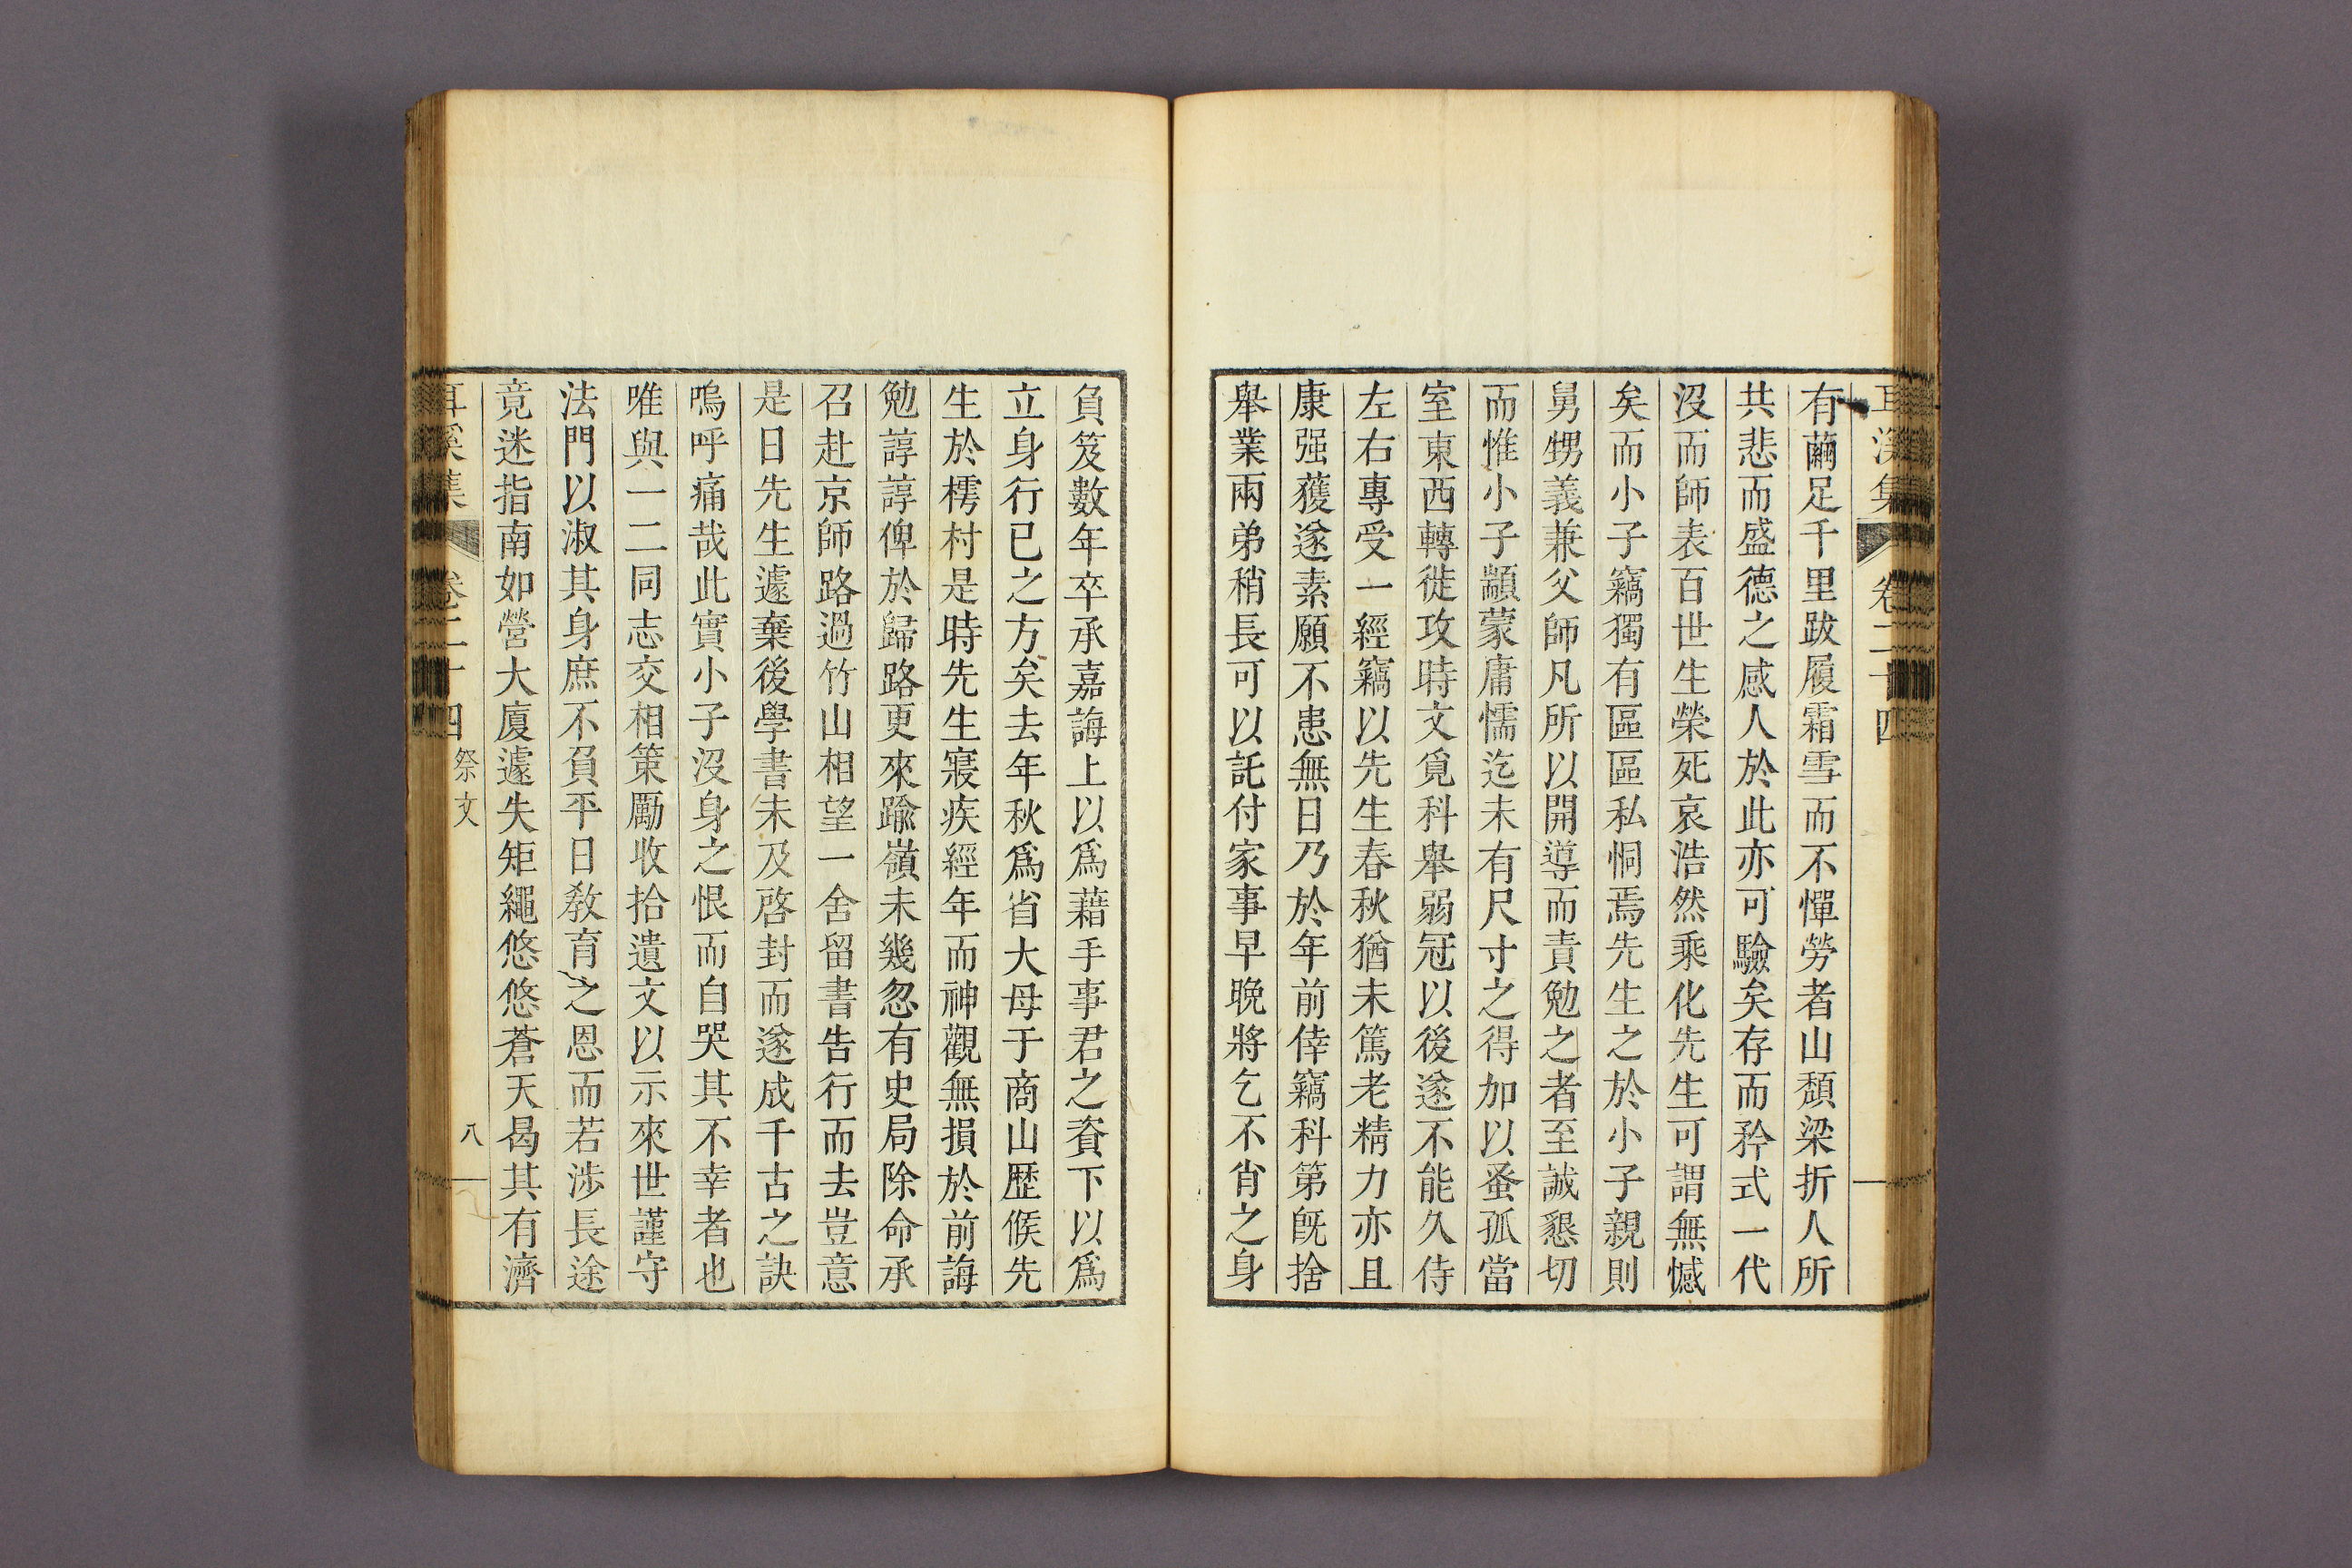 耳溪集 卷二十四
有繭足千里跋履霜雪而不憚勞者山頹梁折人所
共悲而盛德之感人於此亦可驗矣存而矜式一代
沒而師表百世生榮死哀浩然乘化先生可謂無憾
矣而小子竊獨有區區私恫焉先生之於小子親則
舅甥義兼父師凡所以開導而責勉之者至誠懇切
而惟小子顓蒙庸懦迄未有尺寸之得加以蚤孤當
室東西轉徙攻時文覓科舉弱冠以後遂不能久侍
左右專受一經竊以先生春秋猶未篤老精力亦且
康强獲遂素願不患無日乃於年前倖竊科第旣捨
舉業兩弟稍長可以託付家事早晩將乞不肖之身
負笈數年卒承嘉誨上以爲藉手事君之資下以爲
立身行已之方矣去年秋爲省大母于商山歷候先
生於樗村是時先生寢疾經年而神觀無損於前誨
勉諄諄俾於歸路更來踰嶺未幾忽有史局除命承
召赴京師路過竹山相望一舍留書告行而去豈意
是日先生遽棄後學書未及啓封而遂成千古之訣
嗚呼痛哉此實小子沒身之恨而自哭其不幸者也
唯與一二同志交相策勵收拾遺文以示來世謹守
法門以淑其身庶不負平日敎育之恩而若涉長途
竟迷指南如營大廈遽失矩繩悠悠蒼天曷其有濟
耳溪集 卷二十四 祭文 八